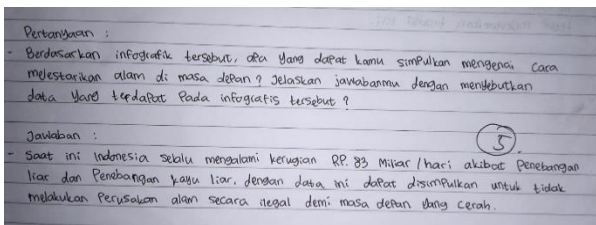 Pertanyaan :
- Berdasarkan infografik tersebut, apa yang dapat kamu simpulkan mengenai cara
melestarikan alam di masa depan ? Jelaskan jawabanmu dengan menyebutkan
data yang terdapat pada infografis tersebut ?
Jawaban :
5
- Saat ini Indonesia selalu mengalami kerugian RP. 83 Miliar /hari akibat Penebangan
liar dan Penebangan kayu liar, dengan data ini dapat disimpulkan untuk tidak
melakukan Perusakan alam secara ilegal demi masa depan yang cerah.